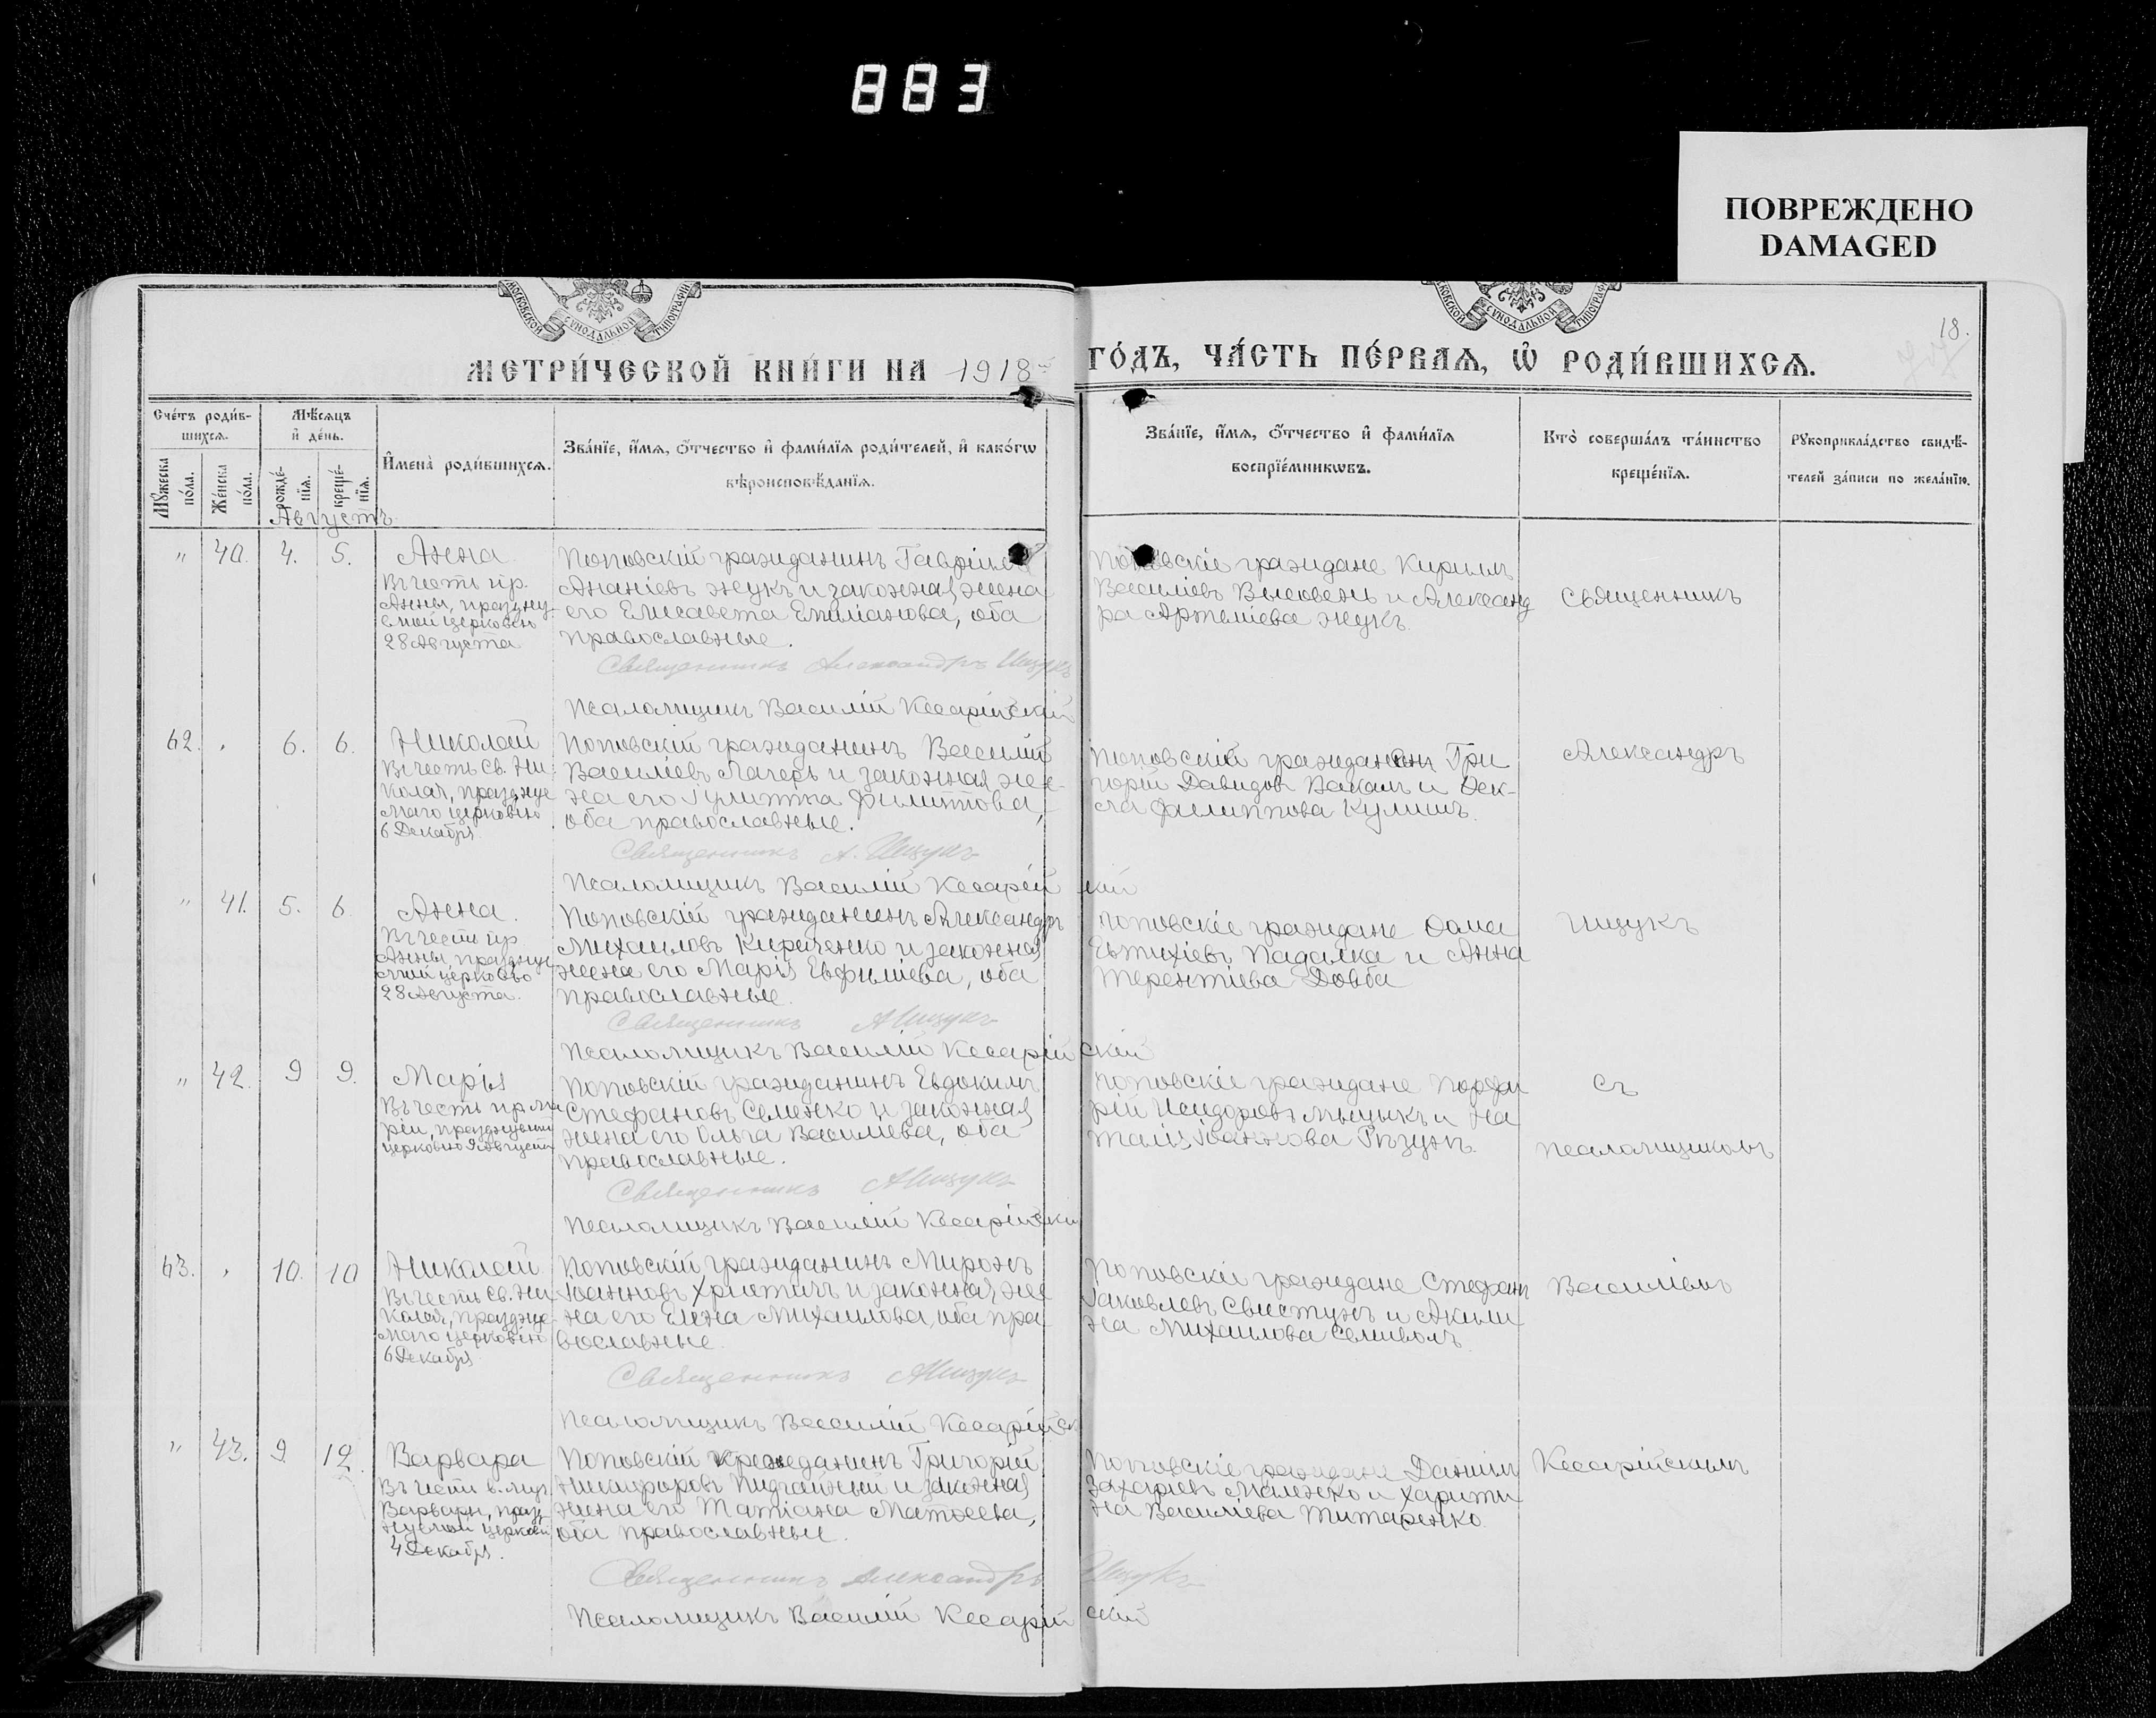 883
ПОВРЕЖДЕНО
DAMAGED
МОСКОВСКОЙ СѴНОДАЛЬНОЙ ТИПОГРАФІИ
МОСКОВСКОЙ СѴНОДАЛЬНОЙ ТИПОГРАФІИ
18.
МЕТРИ́ЧЕСКОЙ КНИ́ГИ НА 1918 ГО́ДЪ, ЧА́СТЬ ПЕ́РВАѦ, Ѡ҆ РОДИ́ВШИХСѦ.
Сче́тъ роди́в-
шихсѧ.
Мꙋ́жеска
по́ла.
Же́нска
по́ла.
Мѣ́сѧцъ
и҆ де́нь.
рожде́-
нїѧ.
креще́-
нїѧ.
И҆мена̀ роди́вшихсѧ.
Зва́нїе, и҆́мѧ, ѻ҆́тчество и҆ фами́лїѧ роди́телей, и҆ како́гѡ
вѣроисповѣ́данїѧ.
Зва́нїе, и҆́мѧ, ѻ҆́тчество и҆ фами́лїѧ
воспрїе́мникѡвъ.
Кто̀ соверша́лъ та́инство
креще́нїѧ.
Рꙋкоприкла́дство свидѣ́-
телей за́писи по жела́нїю.
Августъ
" 40. 4. 5.
Анна
Въ честь пр.
Анны, праздну-
емой церковью
28 Августа
Поповскій гражданинъ Гавріилъ
Ананіевъ Жукъ и законная жена
его Елисавета Емиліанова, оба
православные.
Священникъ Александръ Ищукъ
Псаломщикъ Василій Кесарійскій
Поповскіе граждане Кириллъ
Василіевъ Высовень и Александ
ра Артеміева Жукъ.
Священникъ
62. " 6. 6.
Николай
Въ честь Св. Ни-
колая, празднуе
маго церковію
6 Декабря
Поповскій гражданинъ Василій
Василіевъ Лагерь и законная же-
на его Іулитта Филиппова,
оба православные.
Священникъ А. Ищукъ
Псаломщикъ Василій Кесарійскій
Поповскій гражданинъ Гри
горій Давидовъ Вакалъ и Ѳек-
ла Филиппова Кулишъ.
Александръ
" 41. 5. 6.
Анна.
Въ честь пр.
Анны, праздну
емой церковью
28 Августа.
Поповскій гражданинъ Александръ
Михаиловъ Кириченко и законная
жена его Марія Евфиміева, оба
православные.
Священникъ А Ищукъ
Псаломщикъ Василій Кесарійскій
Поповскіе граждане Ѳома
Евтихіевъ Падалка и Анна
Терентіева Довба
Ищукъ
" 42. 9 9.
Марія
Въ честь пр Ма
ріи, празднуемой
церковью 9 Августа
Поповскій гражданинъ Евдокимъ
Стефановъ Семенко и законная
жена его Ольга Василіева, оба
православные.
Священникъ А Ищукъ
Псаломщикъ Василій Кесарійскій
Поповскіе граждане Порфи
рій Исидоровъ и На
талія Іоаннова Рѣзунъ.
Съ
псаломщикомъ
63. " 10. 10
Николай
Въ честь Св. Ни
колая, праздну
маго церковію
6 Декабря
Поповскій гражданинъ Миронъ
Іоанновъ Христичъ и законная же
на его Елена Михаилова, оба пра
вославные.
Священникъ А Ищукъ
Псаломщикъ Василій Кесарійск
Поповскіе граждане Стефанъ
Іаковлевъ Свистунъ и Акили
на Михаилова Семиволъ.
Василіемъ
" 43. 9 12.
Варвара
Въ честь в. муч.
Варвары, праз
нуемой церковью
4 Декабря.
Поповскій гражданинъ Григорій
Никифоровъ Пидгайный и законная
жена его Татіана Матѳеева,
оба православные.
Священникъ Александръ Ищукъ
Псаломщикъ Василій Кесарійскій
Поповскіе граждане Даніилъ
Захаріевъ Маленко и Харити
на Василіева Титаренко.
Кесарійскимъ